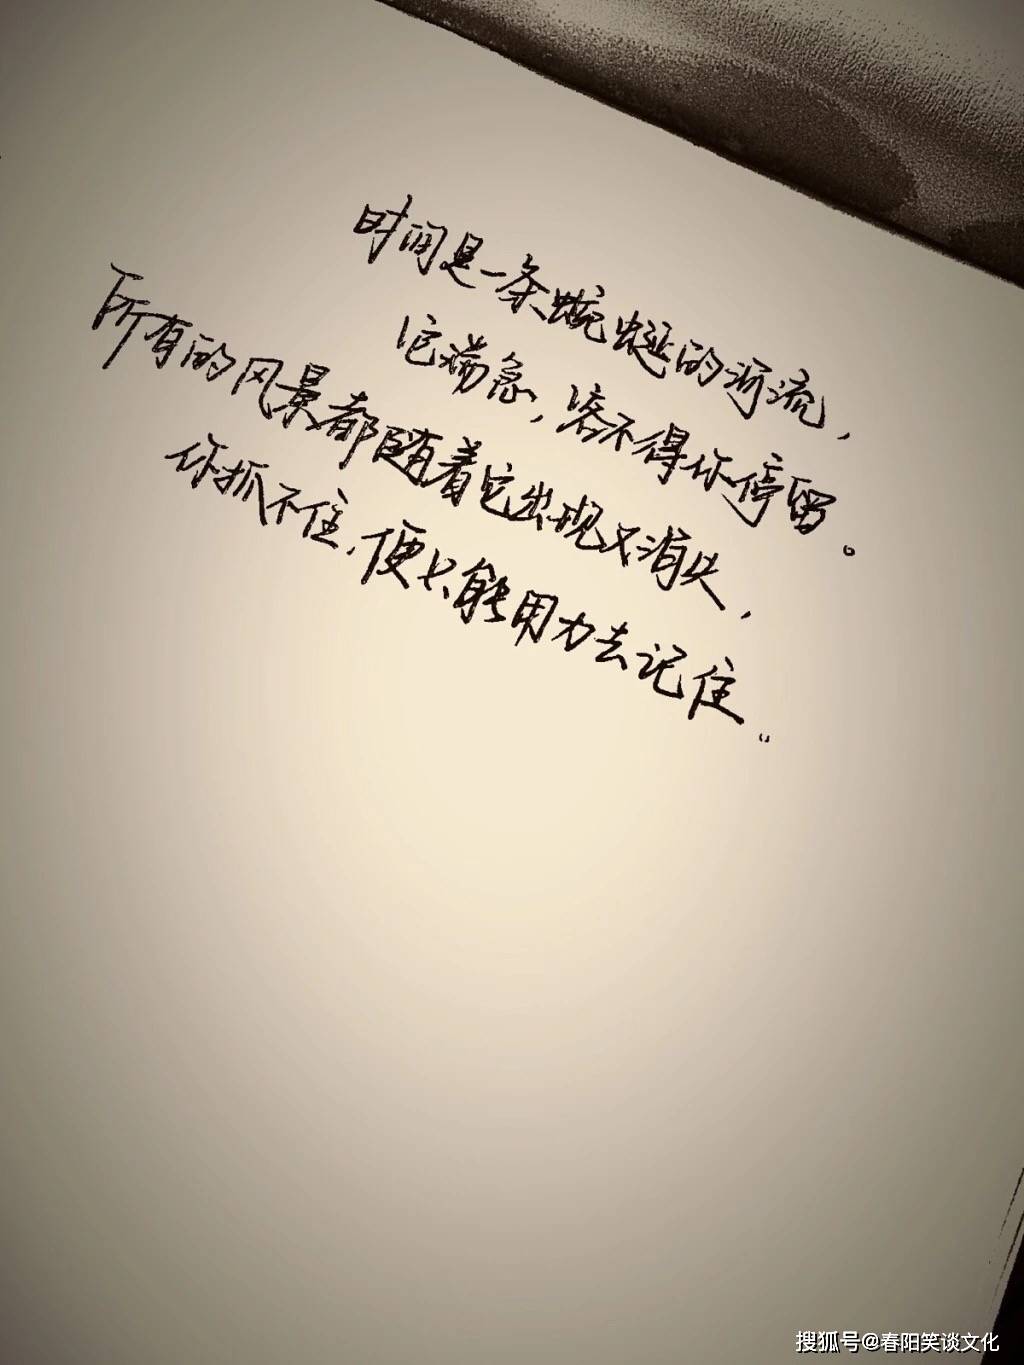 时间是一条蜿蜒的河流，
它湍急，容不得你停留。
所有的风景都随着它出现又消失，
你抓不住，便只能用力去记住。
搜狐号@春阳笑谈文化